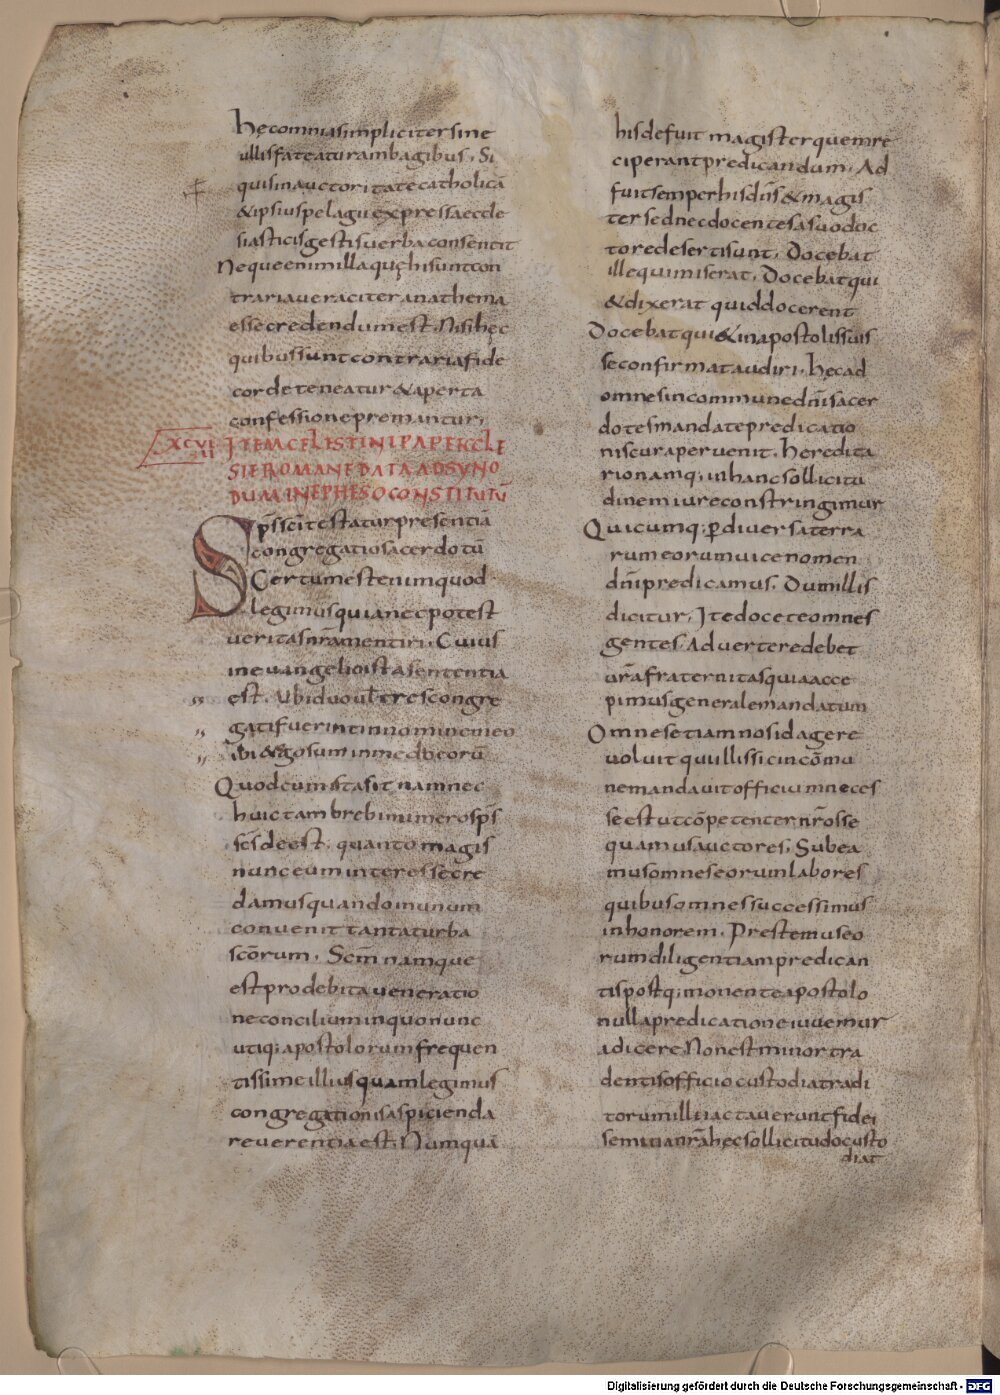 hęcomniasimpliciter sine
ullisfateaturambagibus. Si
quisinauctoritatecatholicā
&ipsiuspelagiiexpressaeccle
siasticisgestisuerbaconsentit
Nequeenimillaquęhissuntcon
trariaueraciteranathema
essecredendumest. Nisihęc
quibussuntcontrariafide
cordeteneatur&aperta
confessionepremantur;
XCVII ITEMCELESTINIPAPEECCLE
SIEROMANEDATAADSYNO
DUMINEPHESOCONSTITUTŪ
Sp̄ss̄citestaturpresentiā
congregatiosacerdotū
Certumestenimquod
legimusquianecpotest
ueritasn̄ramentiri. Cuius
ineuangelioistasententia
est. Ubiduoul̄trescongre
gatifuerintinnominemeo
ibi&egosuminmedioeorū
Quodcumitasitnamnec
huictambrebinumerosp̄s
sc̄sdeest. quantomagis
nunceuminteressecre
damusquandoinunum
conuenittantaturba
sc̄ōrum. Sc̄m̄namque
estprodebitaueneratio
neconciliuminquonunc
utiq;apostolorumfrequen
tissimeilliusquamlegimus
congregationisaspicienda
reuerentiaest. Numquā
hisdefuitmagisterquemre
ciperantpredicandum. Ad
fuitsemperhisdn̄s&magis
tersednecdocentesasuodoc
toredesertisunt. Docebat
illequimiserat. Docebatqui
&dixeratquiddocerent
Docebatqui&inapostolissuis
seconfirmataudiri. hęcad
omnesincommunedn̄isacer
dotesmandatepredicatio
niscuraperuenit. heredita
rionamq;inhancsollicitu
dinemiureconstringimur
Quicumq;p̱diuersaterra
rumeorumuicenomen
dn̄ipredicamus. Dumillis
dicitur, Itedoceteomnes
gentes. Aduerteredebet
ur̄afraternitasquiaacce
pimusgeneralemandatum
Omnesetiamnosidagere
uoluitquiillissicincōmu
nemandauitofficiumneces
seestutcōpetenternr̄osse
quamurauctores. Subea
musomneseorumlabores
quibusomnessuccessimus
inhonorem. Prestemuseo
rumdiligentiampredican
tispostq;monenteapostolo
nullapredicationeiuuemur
adicereNonestminortra
dentisofficiocustodiatradi
torumilliiactaueruntfidei
seminan̄rahęcsollicitudocusto
diat
Digitalisierung gefördert durch die Deutsche Forschungsgemeinschaft - DFG